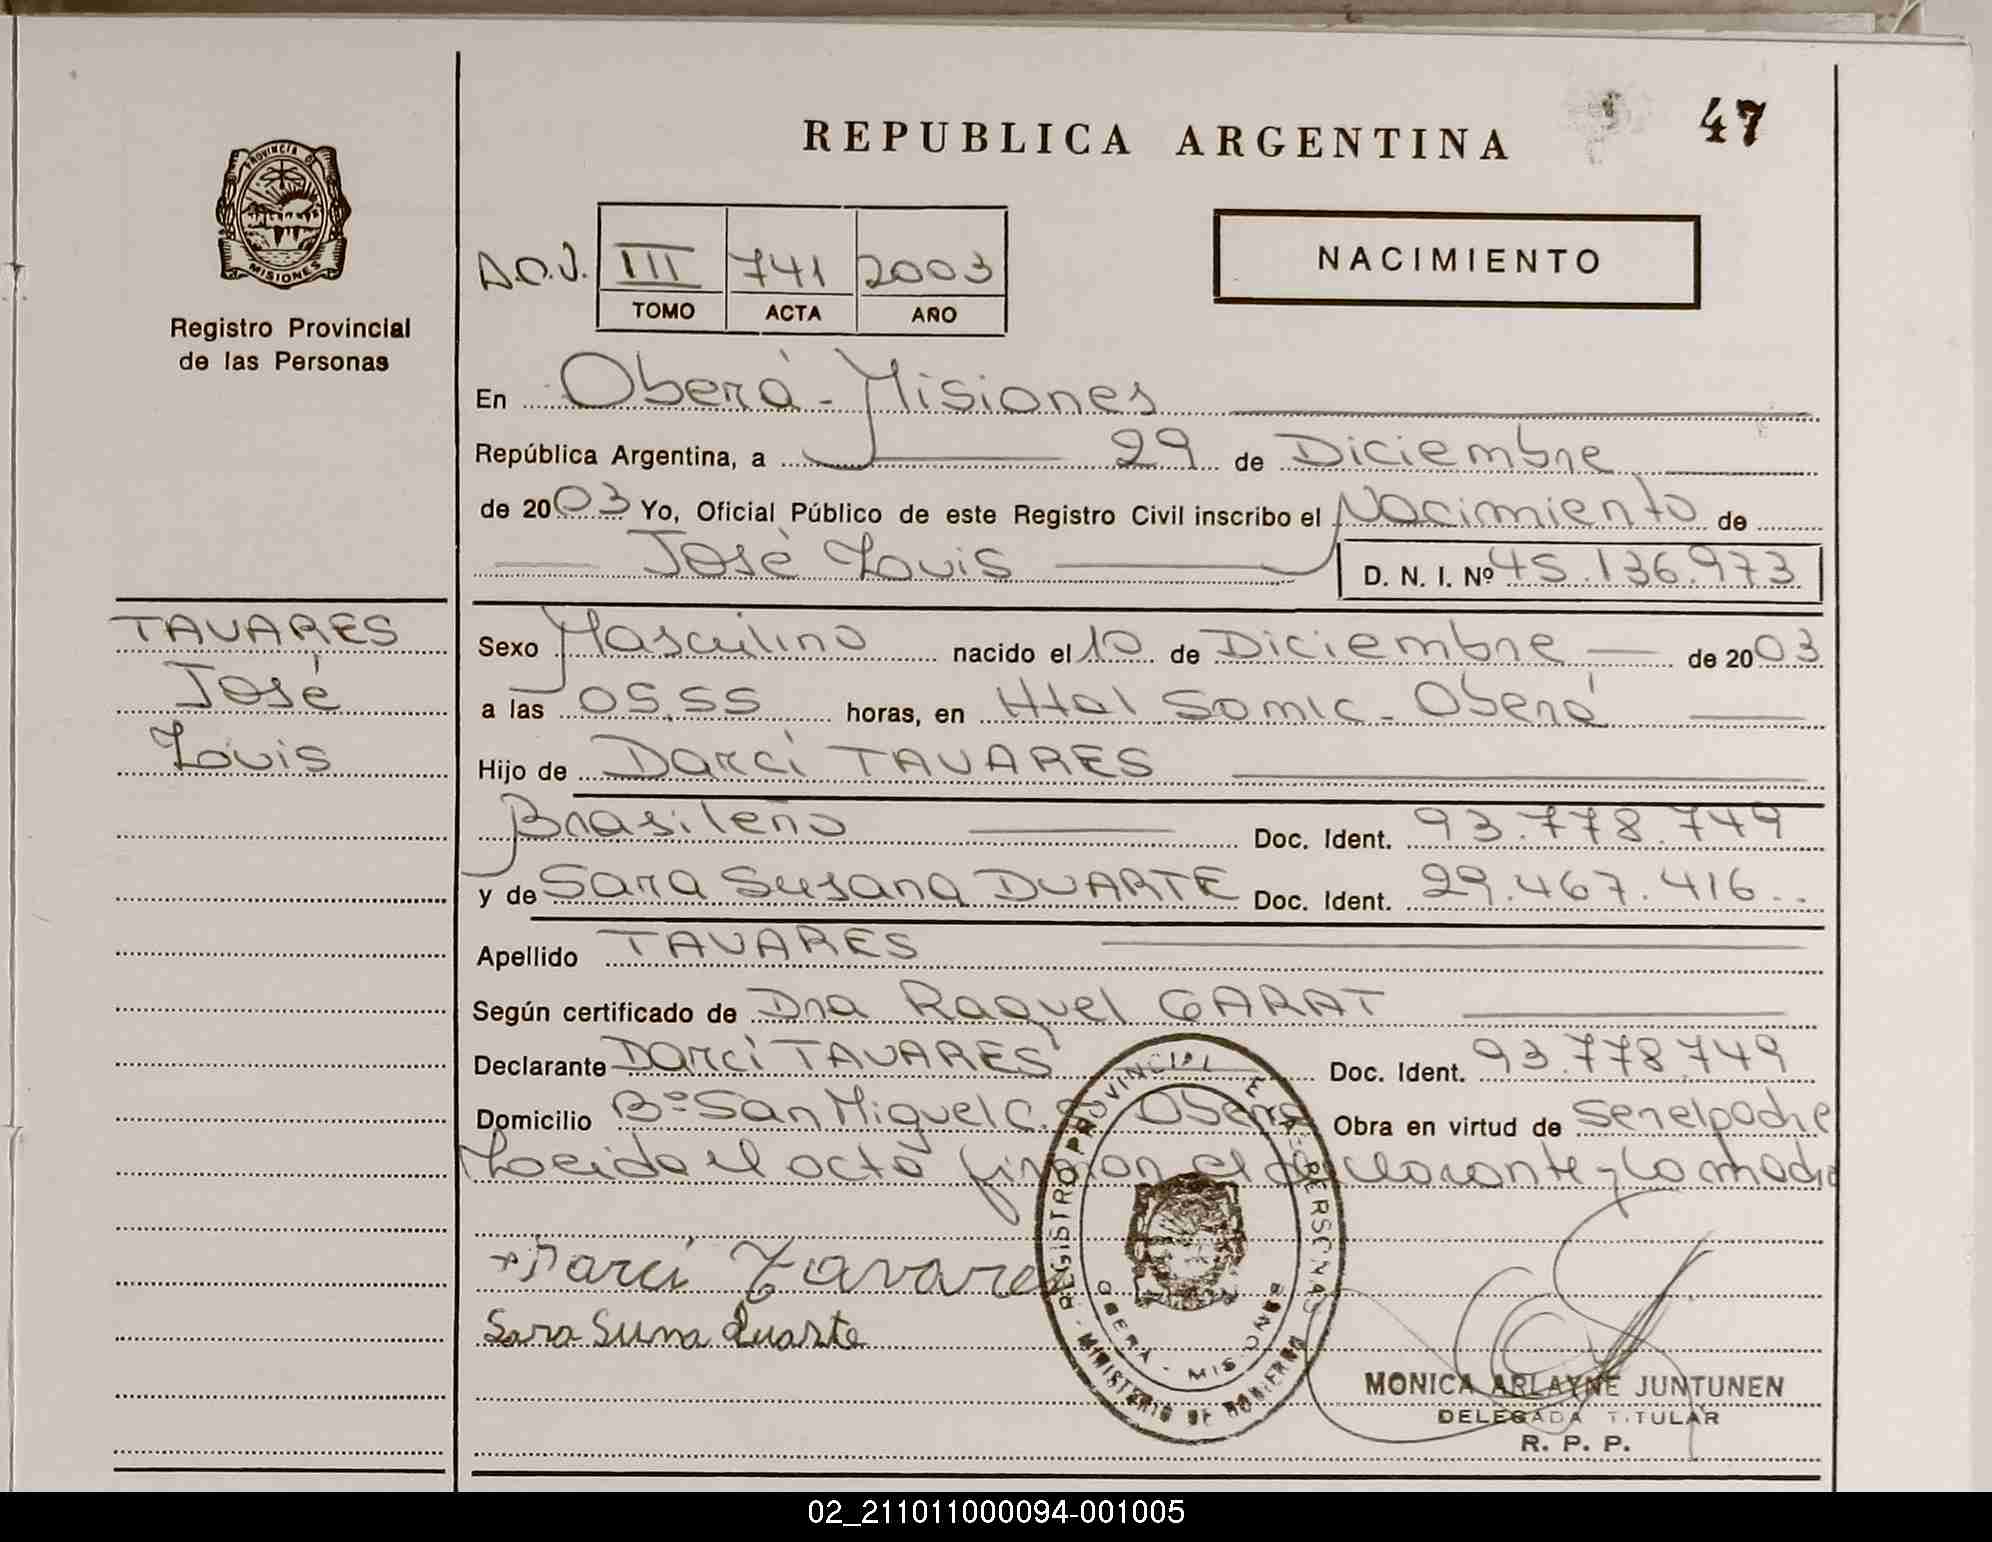 REPUBLICA ARGENTINA
47
PROVINCIA DE
MISIONES
Registro Provincial
de las Personas
D.O.V. III 741 2003
TOMO ACTA AÑO
NACIMIENTO
En Oberá - Misiones
República Argentina, a 29 de Diciembre
de 2003 Yo, Oficial Público de este Registro Civil inscribo el Nacimiento de
José Louis D. N. I. Nº 45.136.973
TAVARES
José
Louis
Sexo Masculino nacido el 10 de Diciembre de 2003
a las 05.55 horas, en Htal Samic - Oberá
Hijo de Darci TAVARES
Brasileño Doc. Ident. 93.778.749
y de Sara Susana DUARTE Doc. Ident. 29.467.416
Apellido TAVARES
Según certificado de Dra Raquel GARAT
Declarante Darci TAVARES Doc. Ident. 93.778.749
Domicilio Bº San Miguel C. Oberá Obra en virtud de ser el padre
Leida el acta firman el declarante y la madre
Darci Tavares
Sara Susana Duarte
REGISTRO PROVINCIAL DE LAS PERSONAS - MINISTERIO DE GOBIERNO
OBERA - MISIONES
MONICA ARLAYNE JUNTUNEN
DELEGADA TITULAR
R. P. P.
02_211011000094-001005